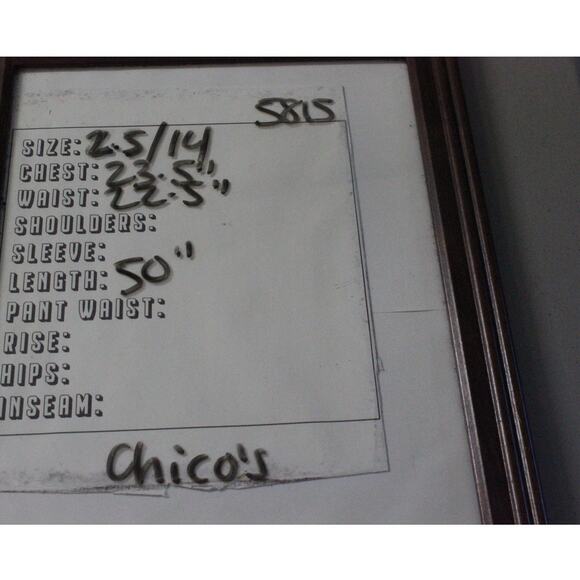 5815
SIZE: 2.5/14
CHEST: 23.5"
WAIST: 22.5"
SHOULDERS:
SLEEVE:
LENGTH: 50"
PANT WAIST:
RISE:
HIPS:
INSEAM:
Chico's